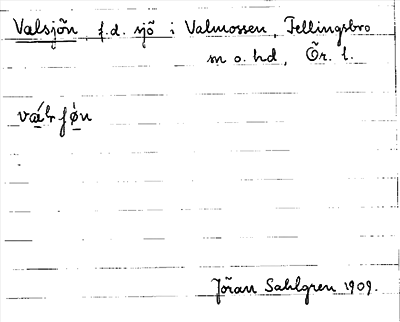 Valsjön, f.d. sjö i Valmossen, Fellingsbro
sn o. hd, Ör. l.
Jöran Sahlgren 1909.